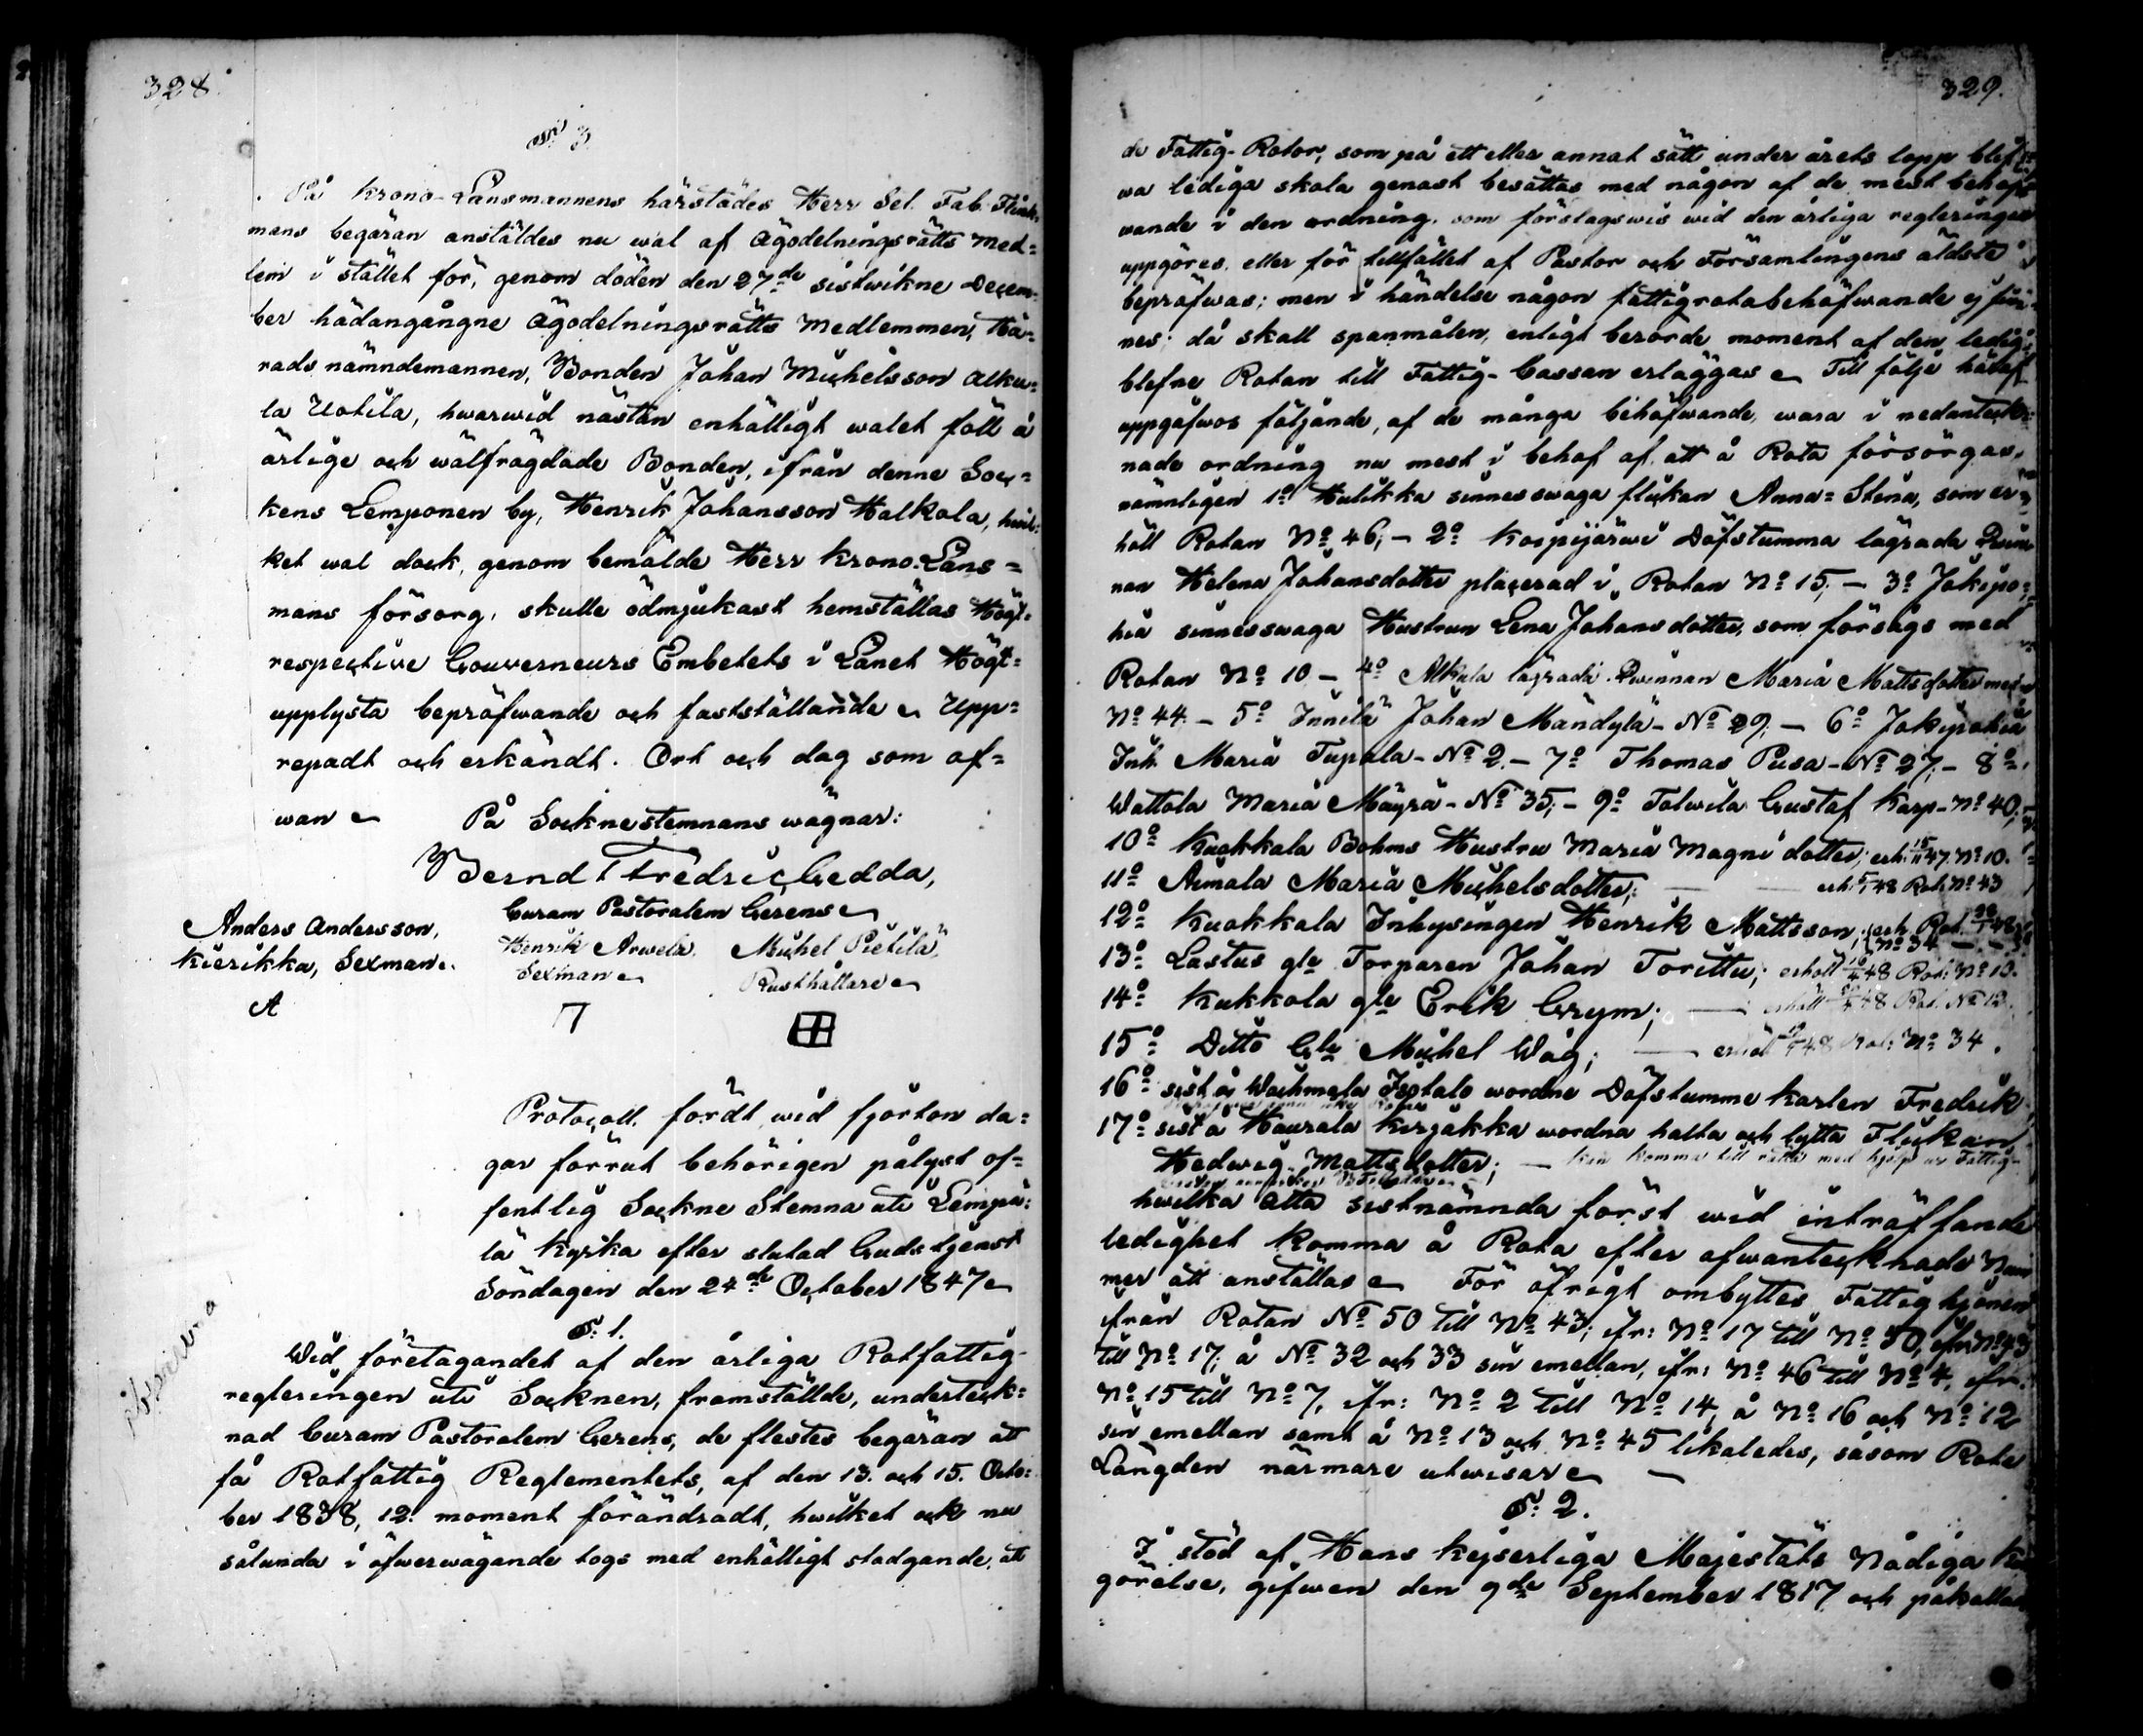 328.
§ 3.
På Krono-Länsmannens härstädes Herr Sel. Fab. Flink-
mans begäran anställdes nu wal af Ägodelningsrätts Med=
lem i stället för, genom döden den 27de sistwikne Decem-
ber hädangångne Ägodelningsrätts Medlemmen, Hä-
radsnämndemannen, Bonden Johan Michelsson Alku-
la Uotila, hwarwid nästan enhälligt walet föll å
ärlige och wälfrägdade Bonden, ifrån denne Soc-
kens Lemponen by, Henrik Johansson Halkola, hwil-
ket wal dock, genom bemälde Herr Krono-Läns=
mans försorg, skulle ödmjukast hemställas Högt-
respective Gouverneurs Embetets i Länet Högt-
upplysta bepröfwande och fastställande. Upp=
repadt och erkändt. Ort och dag som of=
wan. På Socknestemnans wägnar:
Bernd Fredric Gedda,
Curam Pastoralem Gerens
Anders Andersson, Henrik Arwela Michel Pietilä,
Kierikka, Sexman. Sexman Rusthållare
A
Protocoll fördt wid fjorton da=
gar förrut behörigen pålyst of=
fentlig Sockne Stemna uti Lempä-
lä Kyrka efter slutad Gudstjenst
Söndagen den 24de October 1847
§ 1.
Wid företagandet af den årliga Rotfattig-
regleringen uti Socknen, framställde, underteck-
nad Curam Pastoralem Gerens, de flestes begäran att
få Rotfattig Reglementets, af den 13. och 15. Octo-
ber 1838, 12. moment förändradt, hwilket ock nu
sålunda i öfwerwägande togs med enhälligt stadgande, att
329.
de Fattig-Rotor, som på ett eller annat sätt under årets lopp blef-
wa lediga skola genast besättas med någon af de mest behöf-
wande i den ordning, som förslagswis wid den årliga regleringen
uppgöres, eller för tillfället af Pastor och Församlingens äldste
bepröfwas; men i händelse någon fattigrotabehöfwande ej fin-
nes, då skall spanmålen, enligt berörde moment af den ledig-
blefne Rotan till Fattig-Cassan erläggas. Till följe häraf
uppgåfwos följande, af de många behöfwande, wara i nedanteck-
nade ordning nu mest i behof af att å Rota försörgas,
nämnligen 1o Hulikka sinnesswaga flickan Anna-Stina, som er-
höll Rotan No 46; – 2o Koipijärwi Döfstumma lägrada Qwin-
nan Helena Johansdotter placerad i Rotan No 15; – 3o Jokipo-
hia sinnesswaga Hustrun Lena Johansdotter, som försågs med
Rotan No 10 – 4o Alkula lägrada Qwinnan Maria Mattsdotter med
No 44. – 5o Innilä Johan Mändylä – No 29; – 6o Jokipohia
Inh. Maria Tupala – No 2. – 7o Thomas Pusa – No 27; – 8o
Wattola Maria Mäyrä – No 35; – 9o Tolwila Gustaf Karp – No 40;
10o Kuokkala Bohms Hustru Maria Magni dotter; erh. 15/11 47. No 10.
11o Aimala Maria Michelsdotter; — erh. 48 Rot. No 43
12o Kuokkala Inhysingen Henrik Mattsson; erh. Rot. 48
No 34 –
13o Lastus gle Torparen Johan Torittu; erhöll 48 Rot: No 10.
14o Kukkola gle Erik Grym; — erhöll 48 Rot. No 12.
15o Ditto Gle Michel Wåg; — erhöll 48 Rot: No 34.
16o sist å Wachmala Isotalo wordne Döfstumme karlen Fredrik
17o sist å Haurala Kirjakka wordna halta och lytta Flickan
Hedwig Mattsdotter; — kan komma till rätta med hjelp ur Fattig-
hwilka åtta sistnämnda först wid inträffande
ledighet komma å Rota efter ofwantecknade Num-
mer att anställas. För öfrigt ombyttes Fattighjonen
ifrån Rotan No 50 till No 43; ifr: No 17 till No 50, ifr: No 43
till No 17; å No 32 och 33 sin emellan, ifr: No 46 till No 4, ifr.
No 15 till No 7, ifr: No 2 till No 14, å No 16 och No 12
sin emellan samt å No 13 och No 45 likaledes, såsom Rote
Längden närmare utwisar —
§ 2.
I stöd af Hans Kejserliga Majestäts Nådiga
görelse, gifwen den 9de September 1817 och påkallad